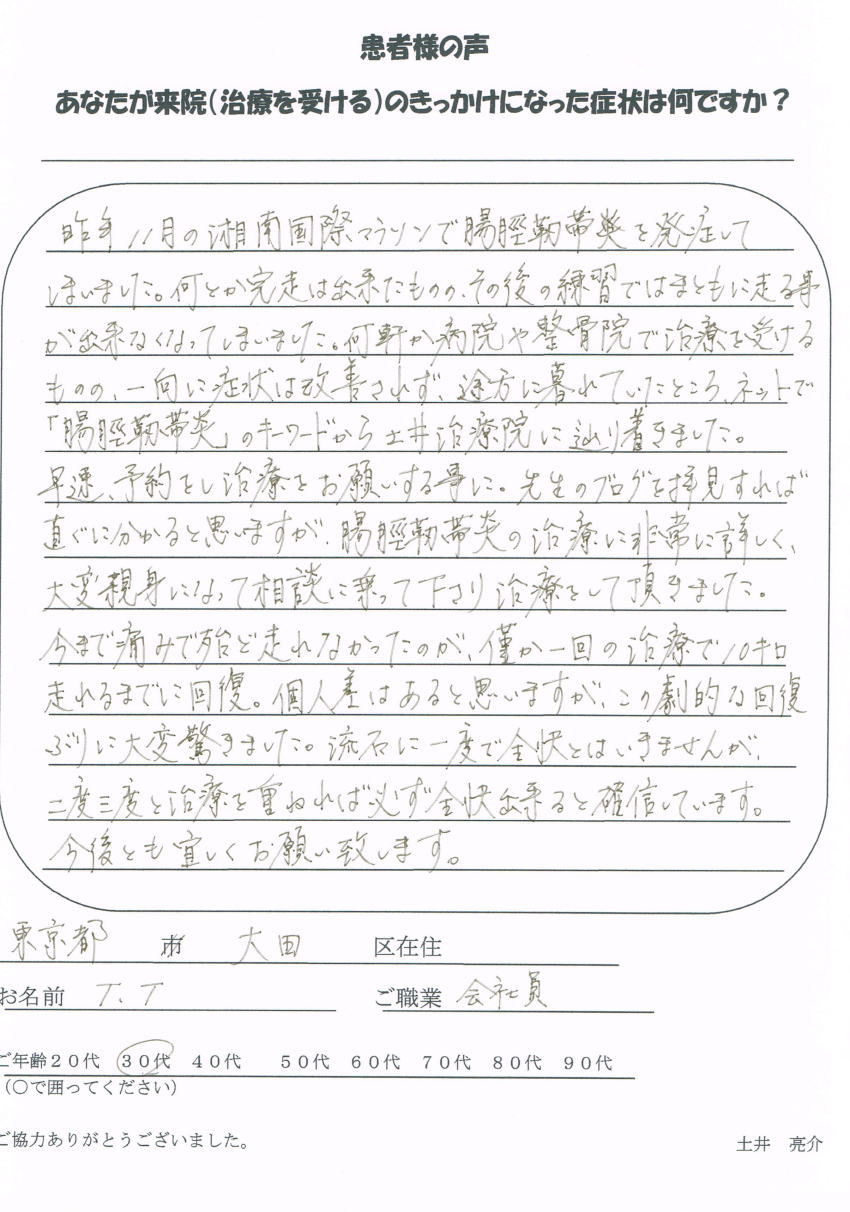 患者様の声
あなたが来院(治療を受ける)のきっかけになった症状は何ですか?
昨年11月の湘南国際マラソンで腸脛靭帯炎を発症して
しまいました。何とか完走は出来たものの、その後の練習ではまともに走る事
が出来なくなってしまいました。何軒か病院や整骨院で治療を受ける
ものの、一向に症状は改善されず、途方に暮れていたところ、ネットで
「腸脛靭帯炎」のキーワードから土井治療院に辿り着きました。
早速、予約をし治療をお願いする事に。先生のブログを拝見すれば
直ぐに分かると思いますが、腸脛靭帯炎の治療に非常に詳しく、
大変親身になって相談に乗って下さり治療をして頂きました。
今まで痛みで殆ど走れなかったのが、僅か一回の治療で10キロ
走れるまでに回復。個人差はあると思いますが、この劇的な回復
ぶりに大変驚きました。流石に一度で全快とはいきませんが、
二度三度と治療を重ねれば必ず全快出来ると確信しています。
今後とも宜しくお願い致します。
東京都 市 大田 区在住
お名前 T.T ご職業 会社員
ご年齢20代 30代 40代 50代 60代 70代 80代 90代
(○で囲ってください)
ご協力ありがとうございました。
土井 亮介